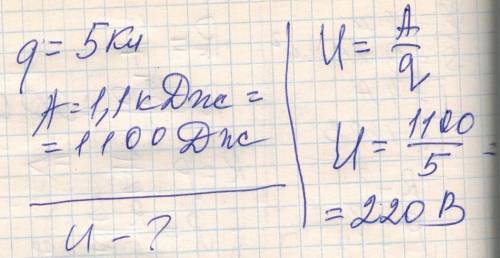 q = 5 Кл
A = 1,1 кДж =
= 1100 Дж
U - ?
U = A/q
U = 1100/5 =
= 220 В